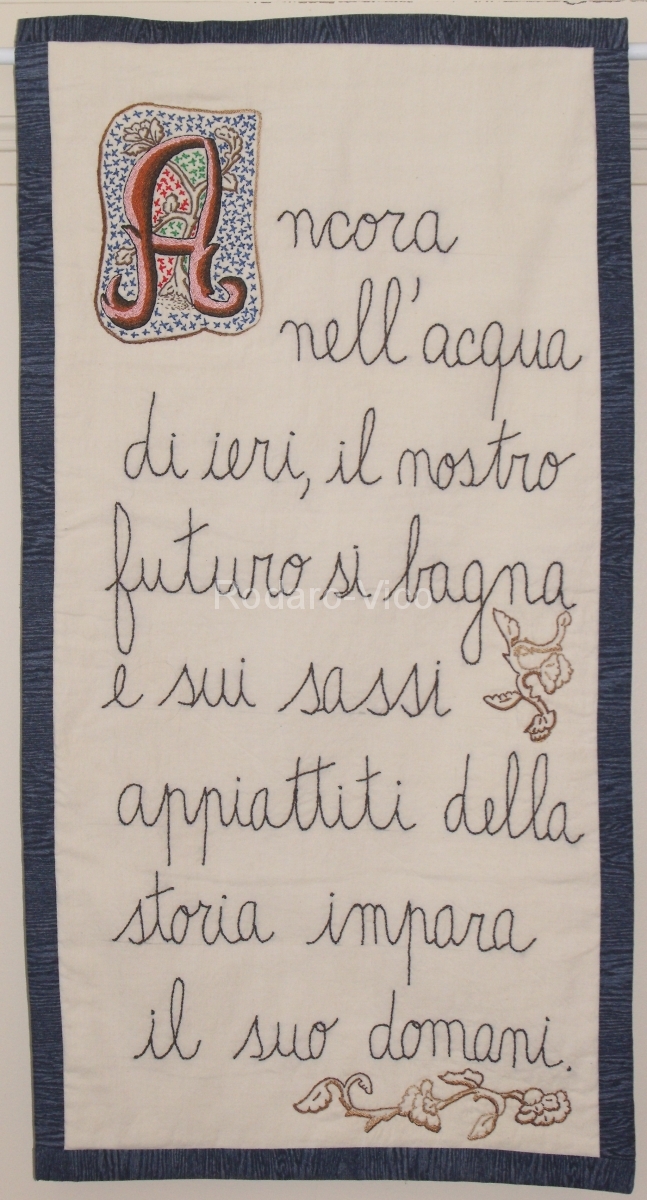 Ancora
nell'acqua
di ieri, il nostro
futuro si bagna
Rodaro-Vico
e sui sassi
appiattiti della
storia impara
il suo domani.